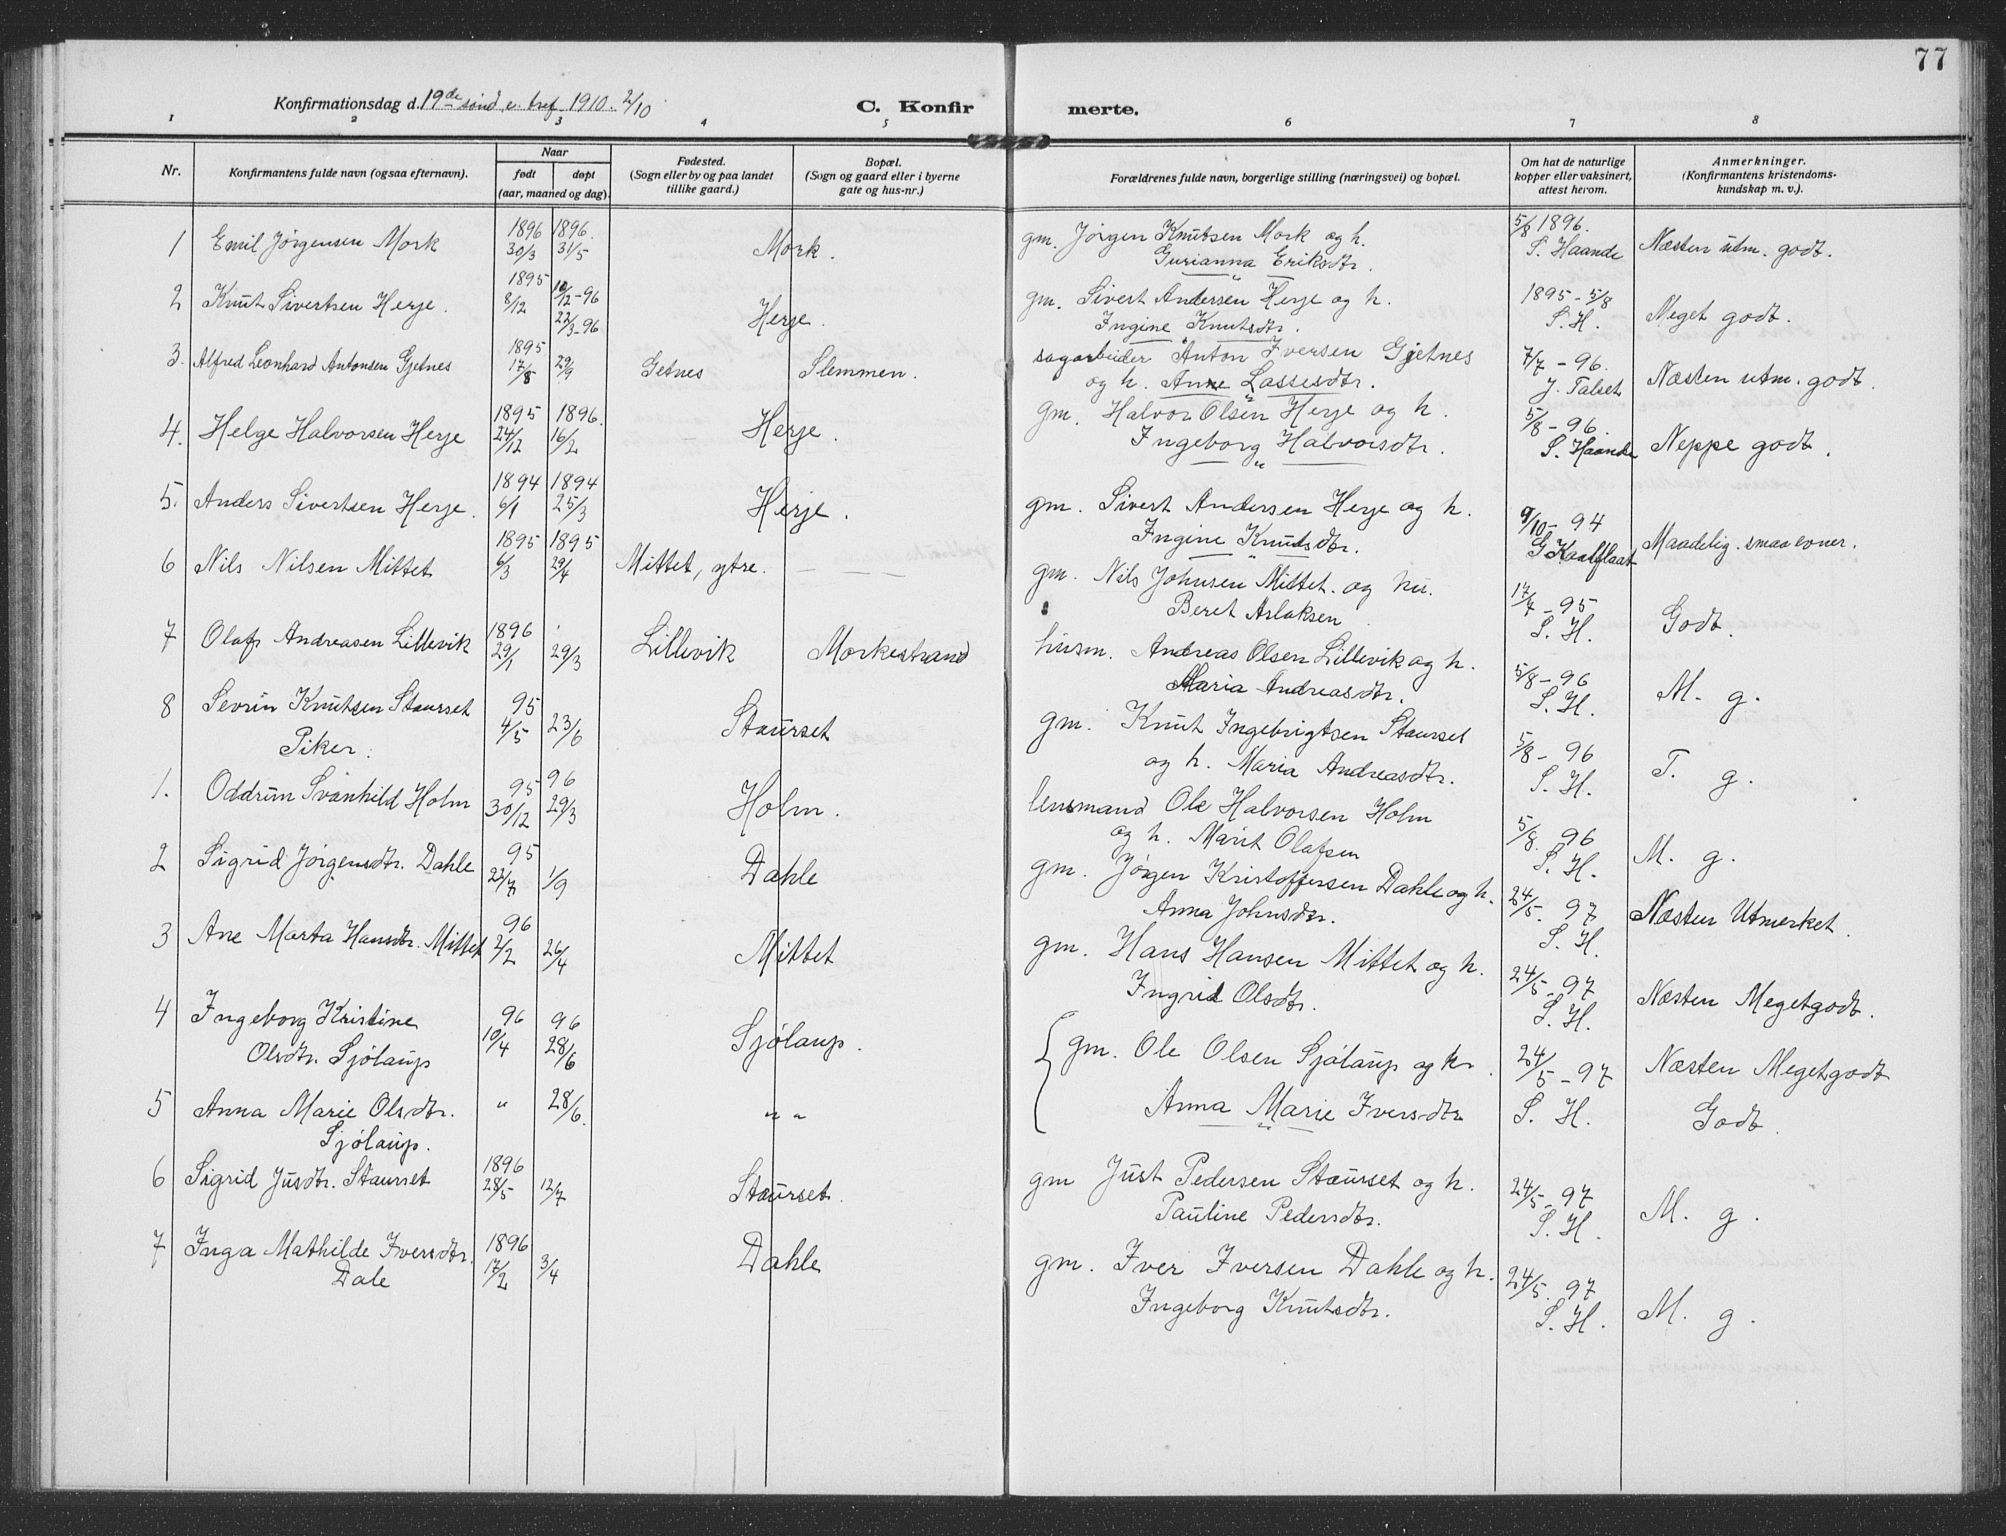 77
Konfirmationsdag d. 19de sønd e. tref. 1910. 2/10
C. Konfirmerte.
1 2 3 4 5 6 7 8
Nr. Konfirmantens fulde navn (ogsaa efternavn). Naar født døpt (aar, maaned og dag). Fødested. (Sogn eller by og paa landet tillike gaard.) Bopæl. (Sogn og gaard eller i byerne gate og hus-nr.) Forældrenes fulde navn, borgerlige stilling (næringsvei) og bopæl. Om hat de naturlige kopper eller vaksinert, attest herom. Anmerkninger. (Konfirmantens kristendoms-kundskap m. v.).
1 Emil Jørgensen Mork 1896 30/3 1896. 31/5 Mork. gm. Jørgen Knutsen Mork og h. 5/8 1896. Næsten utm. godt.
Gurianna Eriksdtr. S. Haande
2 Knut Sivertsen Herje. 1895 8/12 10/12-96 22/3-96 Herje. gm. Sivert Andersen Herje og h. 1895 - 5/8 Meget godt.
Ingine Knutsdtr. S. H.
3. Alfred Leonhard Antonsen Gjetnes 1895 17/8 29/9 Getnes Slemmen. sagarbeider Anton Iversen Gjetnes 7/7 - 96. Næsten utm. godt.
og h. Anne Lassesdtr. J. Talset
4. Helge Halvorsen Herje 1895 24/12 1896. 16/2 Herje. gm. Halvor Olsen Herje og h. 5/8 - 96. Neppe godt.
Ingeborg Halvorsdtr. S. Haande
5. Anders Sivertsen Herje. 1894 6/1 1894 25/3 Herje. gm. Sivert Andersen Herje og h. 9/10 - 94 Maadelig. smaa evner.
Ingine Knutsdtr. G Kaalflaat
6 Nils Nilsen Mittet 1895 6/3 1895 29/4 Mittet, ytre. — — gm. Nils Johnsen Mittet. og hu. 17/7 - 95 Godt.
Beret Aslaksen S. H.
7 Olaf Andreasen Lillevik 1896 29/1 29/3 Lillevik Morkestrand husm. Andreas Olsen Lillevik og h. 5/8 - 96 M. g.
Maria Andreasdtr. S. H.
8 Sevrin Knutsen Staurset 95 4/5 23/6 Staurset gm. Knut Ingebrigtsen Staurset 5/8 - 96 T. g.
og h. Maria Andreasdtr. S. H.
Piker:
1. Oddrun Svanhild Holm 95 30/12 96 29/3 Holm. lensmand Ole Halvorsen Holm 5/8. 96 M. g.
og h. Marit Olafsen S. H.
2 Sigrid Jørgensdtr. Dahle 95 22/7 1/9 Dahle gm. Jørgen Kristoffersen Dahle og h. 24/5. 97 Næsten Utmerket.
Anna Johnsdtr. S. H.
3 Ane Marta Hansdtr. Mittet 96 2/2 26/4 Mittet gm. Hans Hansen Mittet og h. 24/5 - 97 Næsten Megetgodt.
Ingrid Olsdtr. S. H.
4 Ingeborg Kristine 96 10/4 96 28/6 Sjølaup. gm. Ole Olsen Sjølaup og h. 24/5 - 97 Næsten Megetgodt
Olsdtr. Sjølaup
5 Anna Marie Olsdtr. " 28/6. " " Anna Marie Iversdtr S. H. Godt.
Sjølaup.
6 Sigrid Jusdtr. Staurset 1896 28/5 12/7 Staurset. gm Just Pedersen Staurset og h. 24/5 - 97 M. g.
Pauline Pedersdtr. S. H.
7 Inga Mathilde Iversdtr. 1896 17/2 3/4 Dahle gm. Iver Iversen Dahle og h. 24/5. 97 M. g.
Dale Ingeborg Knutsdtr. S. H.